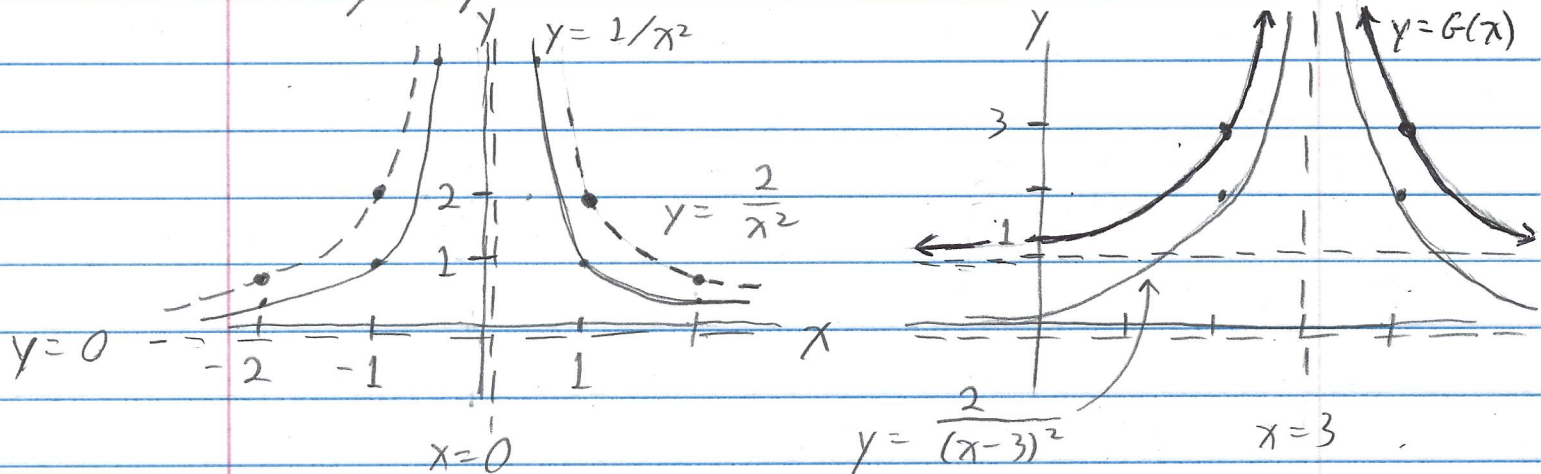 y = 1/x²
y
y = 2/x²
2
1
y = 0
-2
-1
1
x
x = 0
y
y = G(x)
3
1
y = 2/(x-3)²
x = 3